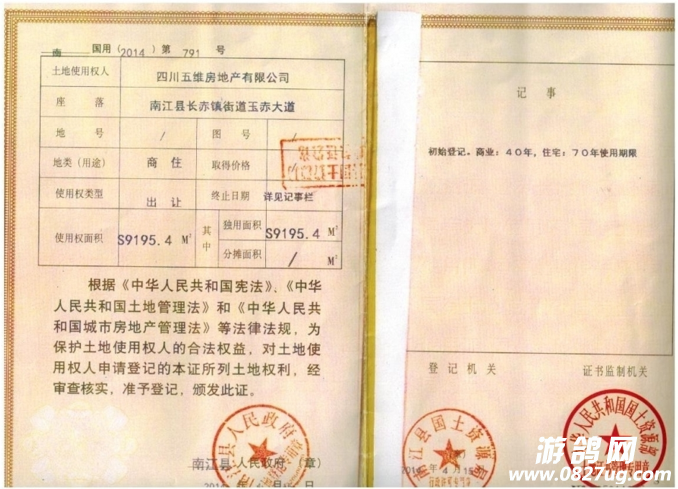 南 国用（2014）第 791 号
土地使用权人 四川五维房地产有限公司
座 落 南江县长赤镇街道玉赤大道
地 号 / 图 号 /
地类（用途） 商 住 取得价格
使用权类型 出 让 终止日期 详见记事栏
使用权面积 S9195.4 M² 其中 独用面积 S9195.4 M²
分摊面积 / M²
根据《中华人民共和国宪法》、《中华
人民共和国土地管理法》和《中华人民共
和国城市房地产管理法》等法律法规，为
保护土地使用权人的合法权益，对土地使
用权人申请登记的本证所列土地权利，经
审查核实，准予登记，颁发此证。
南江县 人民政府 （章）
记 事
初始登记。商业：40年，住宅：70年使用期限
登 记 机 关
证书监制机关
南江县国土资源局
年 4 月 15
游鸽网
www.0827ug.com